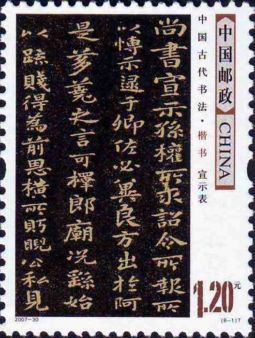 尚書宣示孫權所求詔令所報所
以博示逮于卿佐必冀良方出於阿
是芻蕘之言可擇郎廟況繇始
以疏賤得為前恩橫所盱睨公私見
中国古代书法·楷书 宣示表
中国邮政
CHINA
1.20元
2007-30
(6-1)T